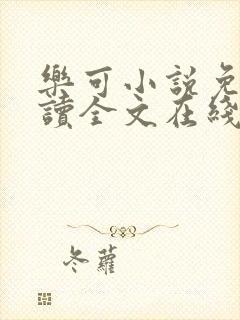 樂可小說免
讀全文在綫
冬蘿